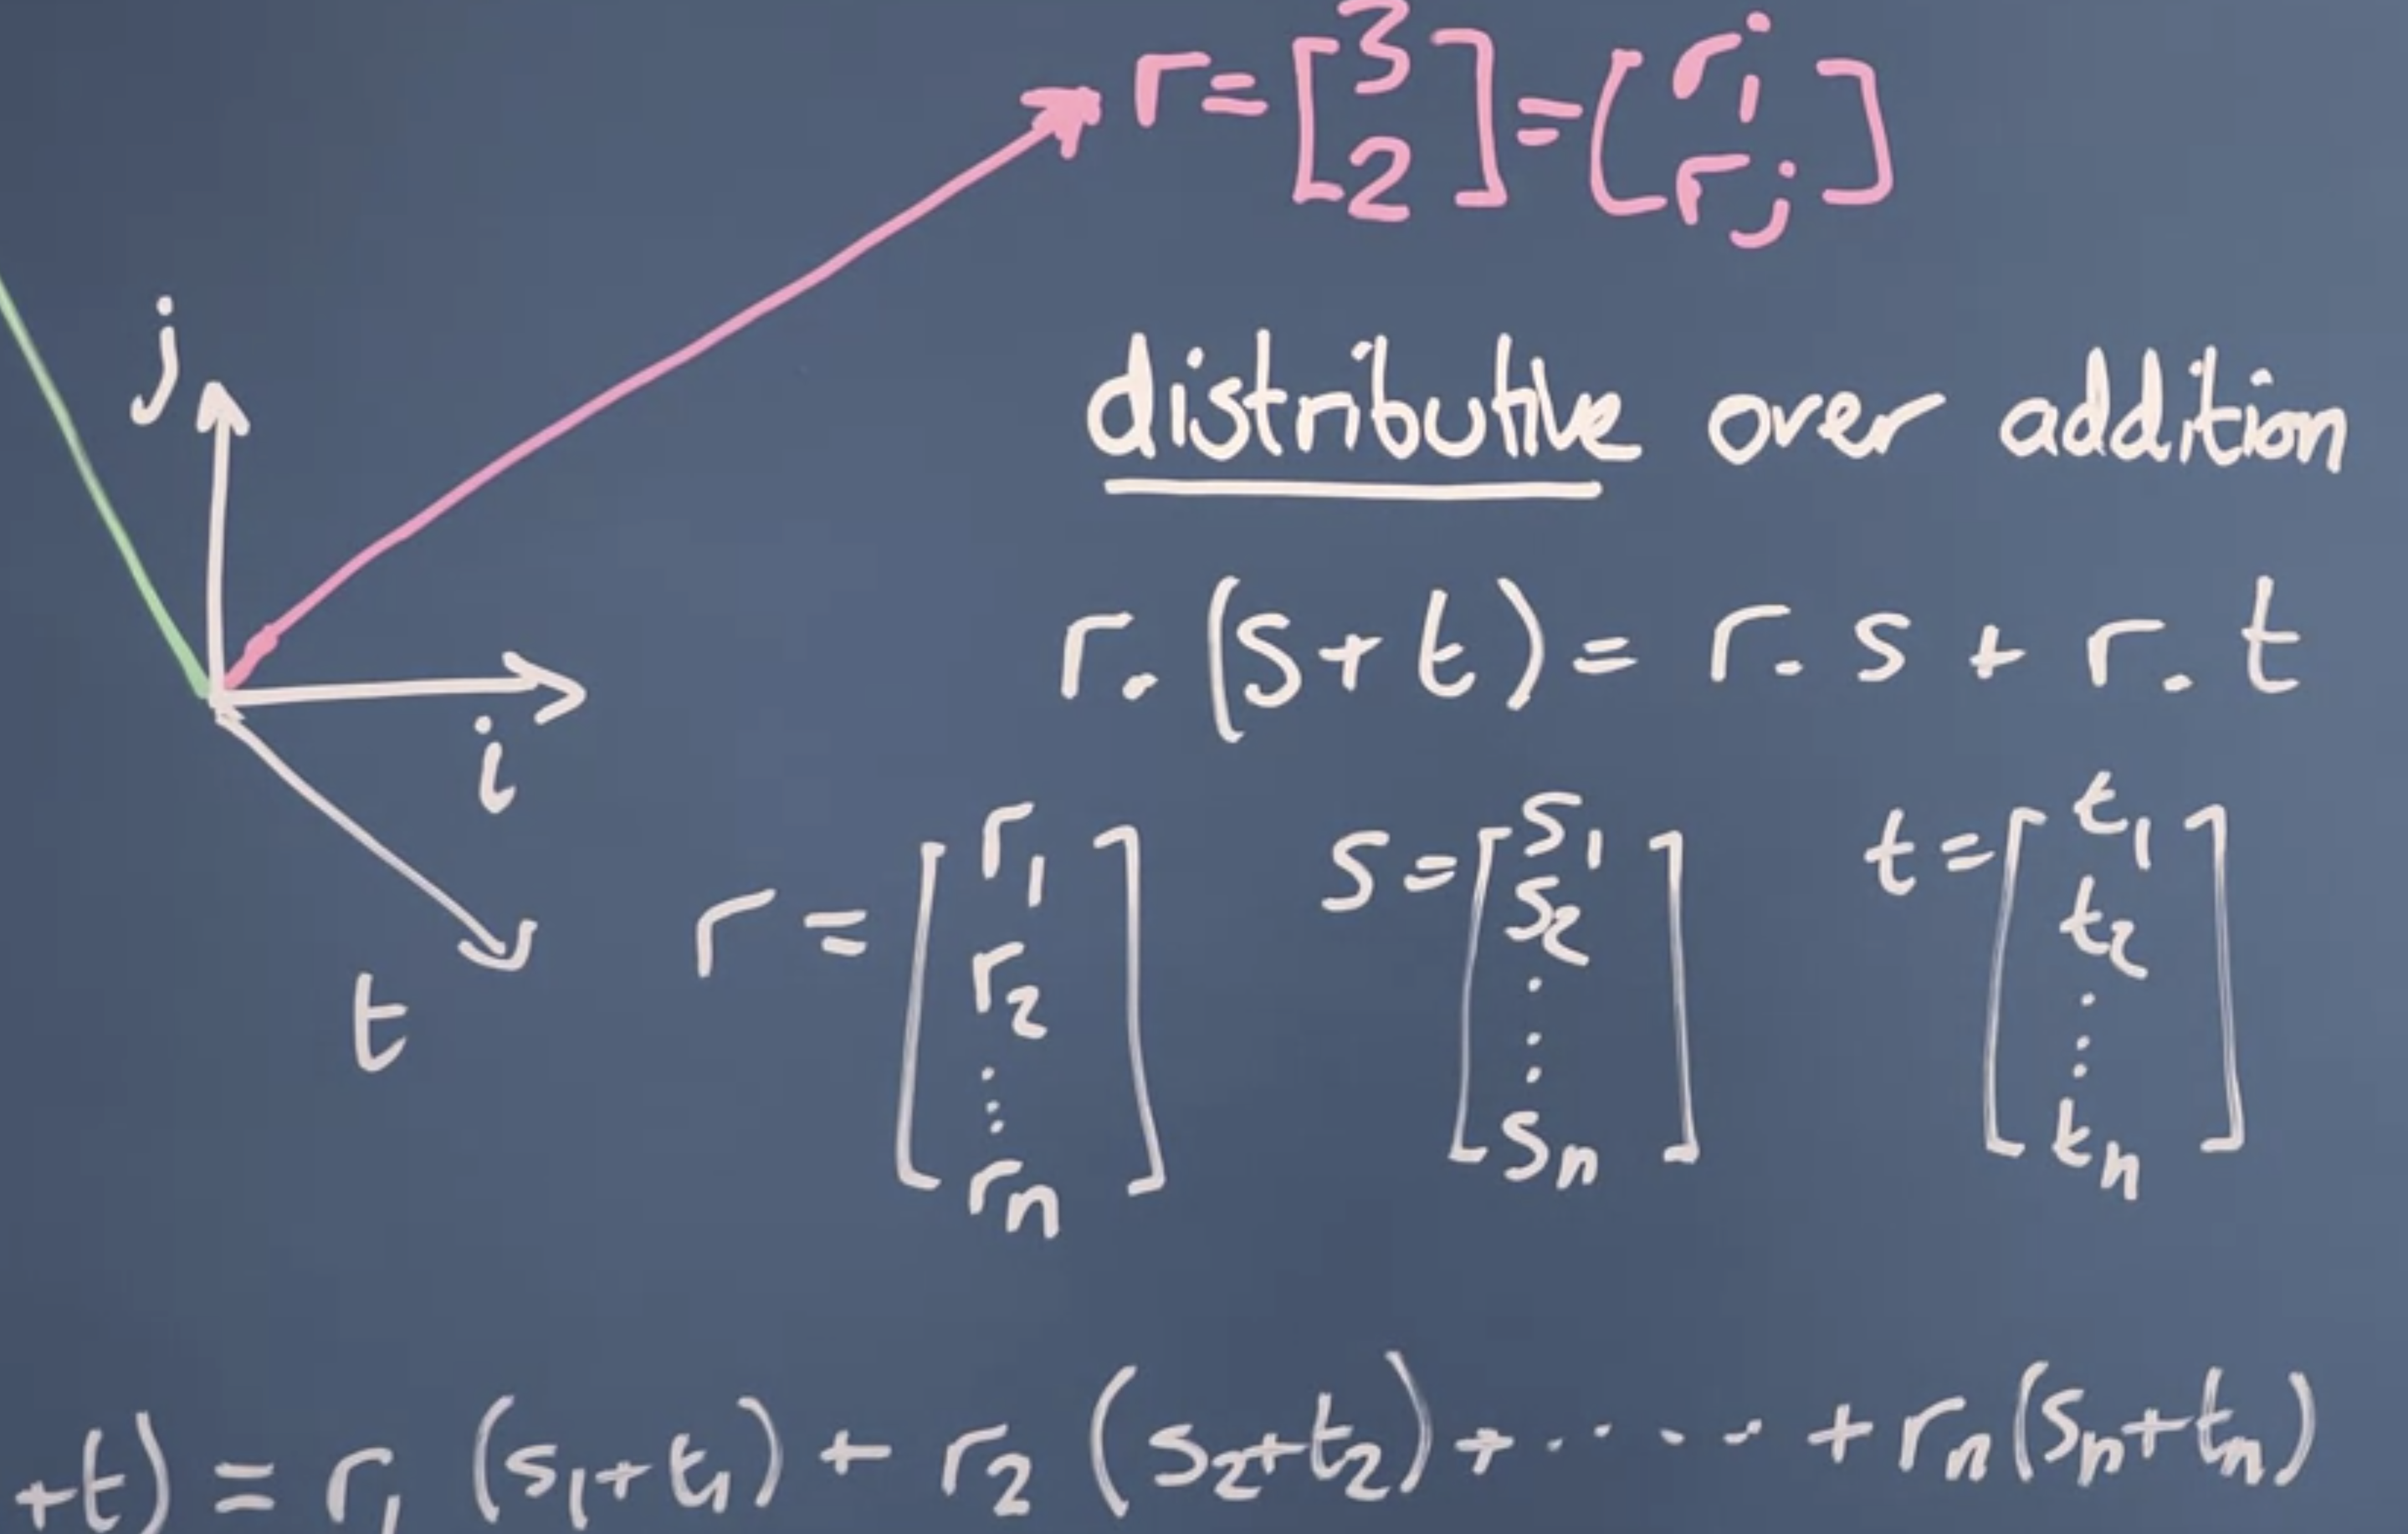 r = [3 2] = [r_i r_j]
j
distributive over addition
r.(s+t) = r.s + r.t
i
r = [r_1 r_2 ⋮ r_n] s = [s_1 s_2 ⋮ s_n] t = [t_1 t_2 ⋮ t_n]
t
+t) = r_1 (s_1+t_1) + r_2 (s_2+t_2) + ..... + r_n(s_n+t_n)